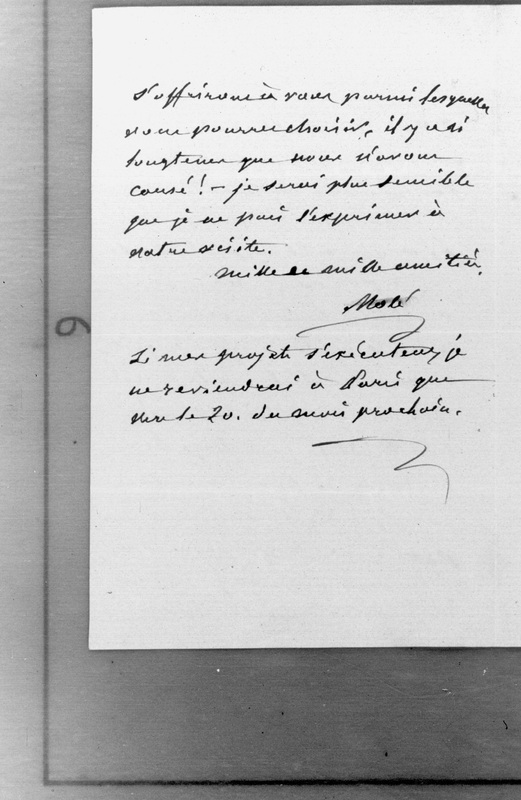 s'offriront à vous parmi lesquelles
vous pourrez choisir, il y a si
longtems que nous n'avons
causé! – je serai plus sensible
que je ne puis l'exprimer à
votre visite.
mille et mille amitiés.
Molé
Si mes projets s'exécutent, je
ne reviendrai à Paris que
vers le 20. du mois prochain.
9